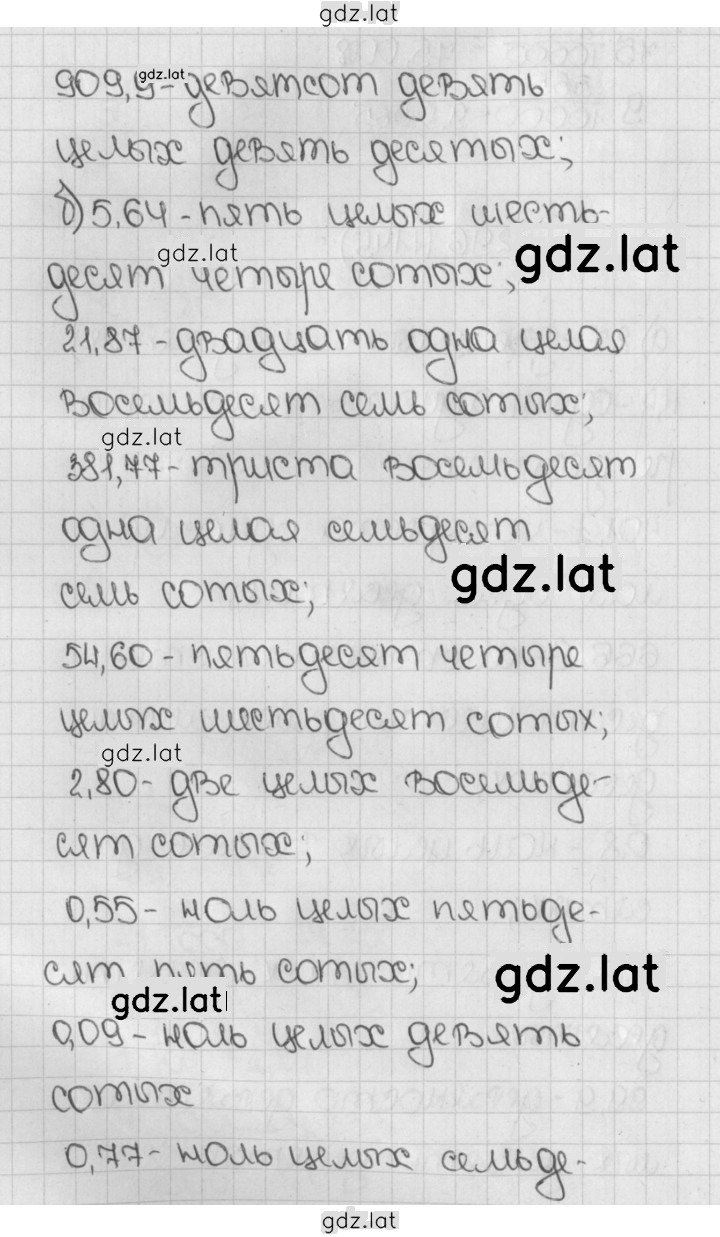 gdz.lat
909,9 - девятсот девять
gdz.lat
целых девять десятых;
б) 5,64 - пять целых шесть-
gdz.lat
gdz.lat
десят четыре сотых;
21,87 - двадцать одна целая
восемьдесят семь сотых;
gdz.lat
381,77 - триста восемьдесят
одна целая семьдесят
gdz.lat
семь сотых;
54,60 - пятьдесят четыре
целых шестьдесят сотых;
gdz.lat
2,80 - две целых восемьде-
сят сотых;
0,55 - ноль целых пятьде-
сят пять сотых;
gdz.lat
gdz.lat
0,09 - ноль целых девять
сотых
0,77 - ноль целых семьде-
gdz.lat